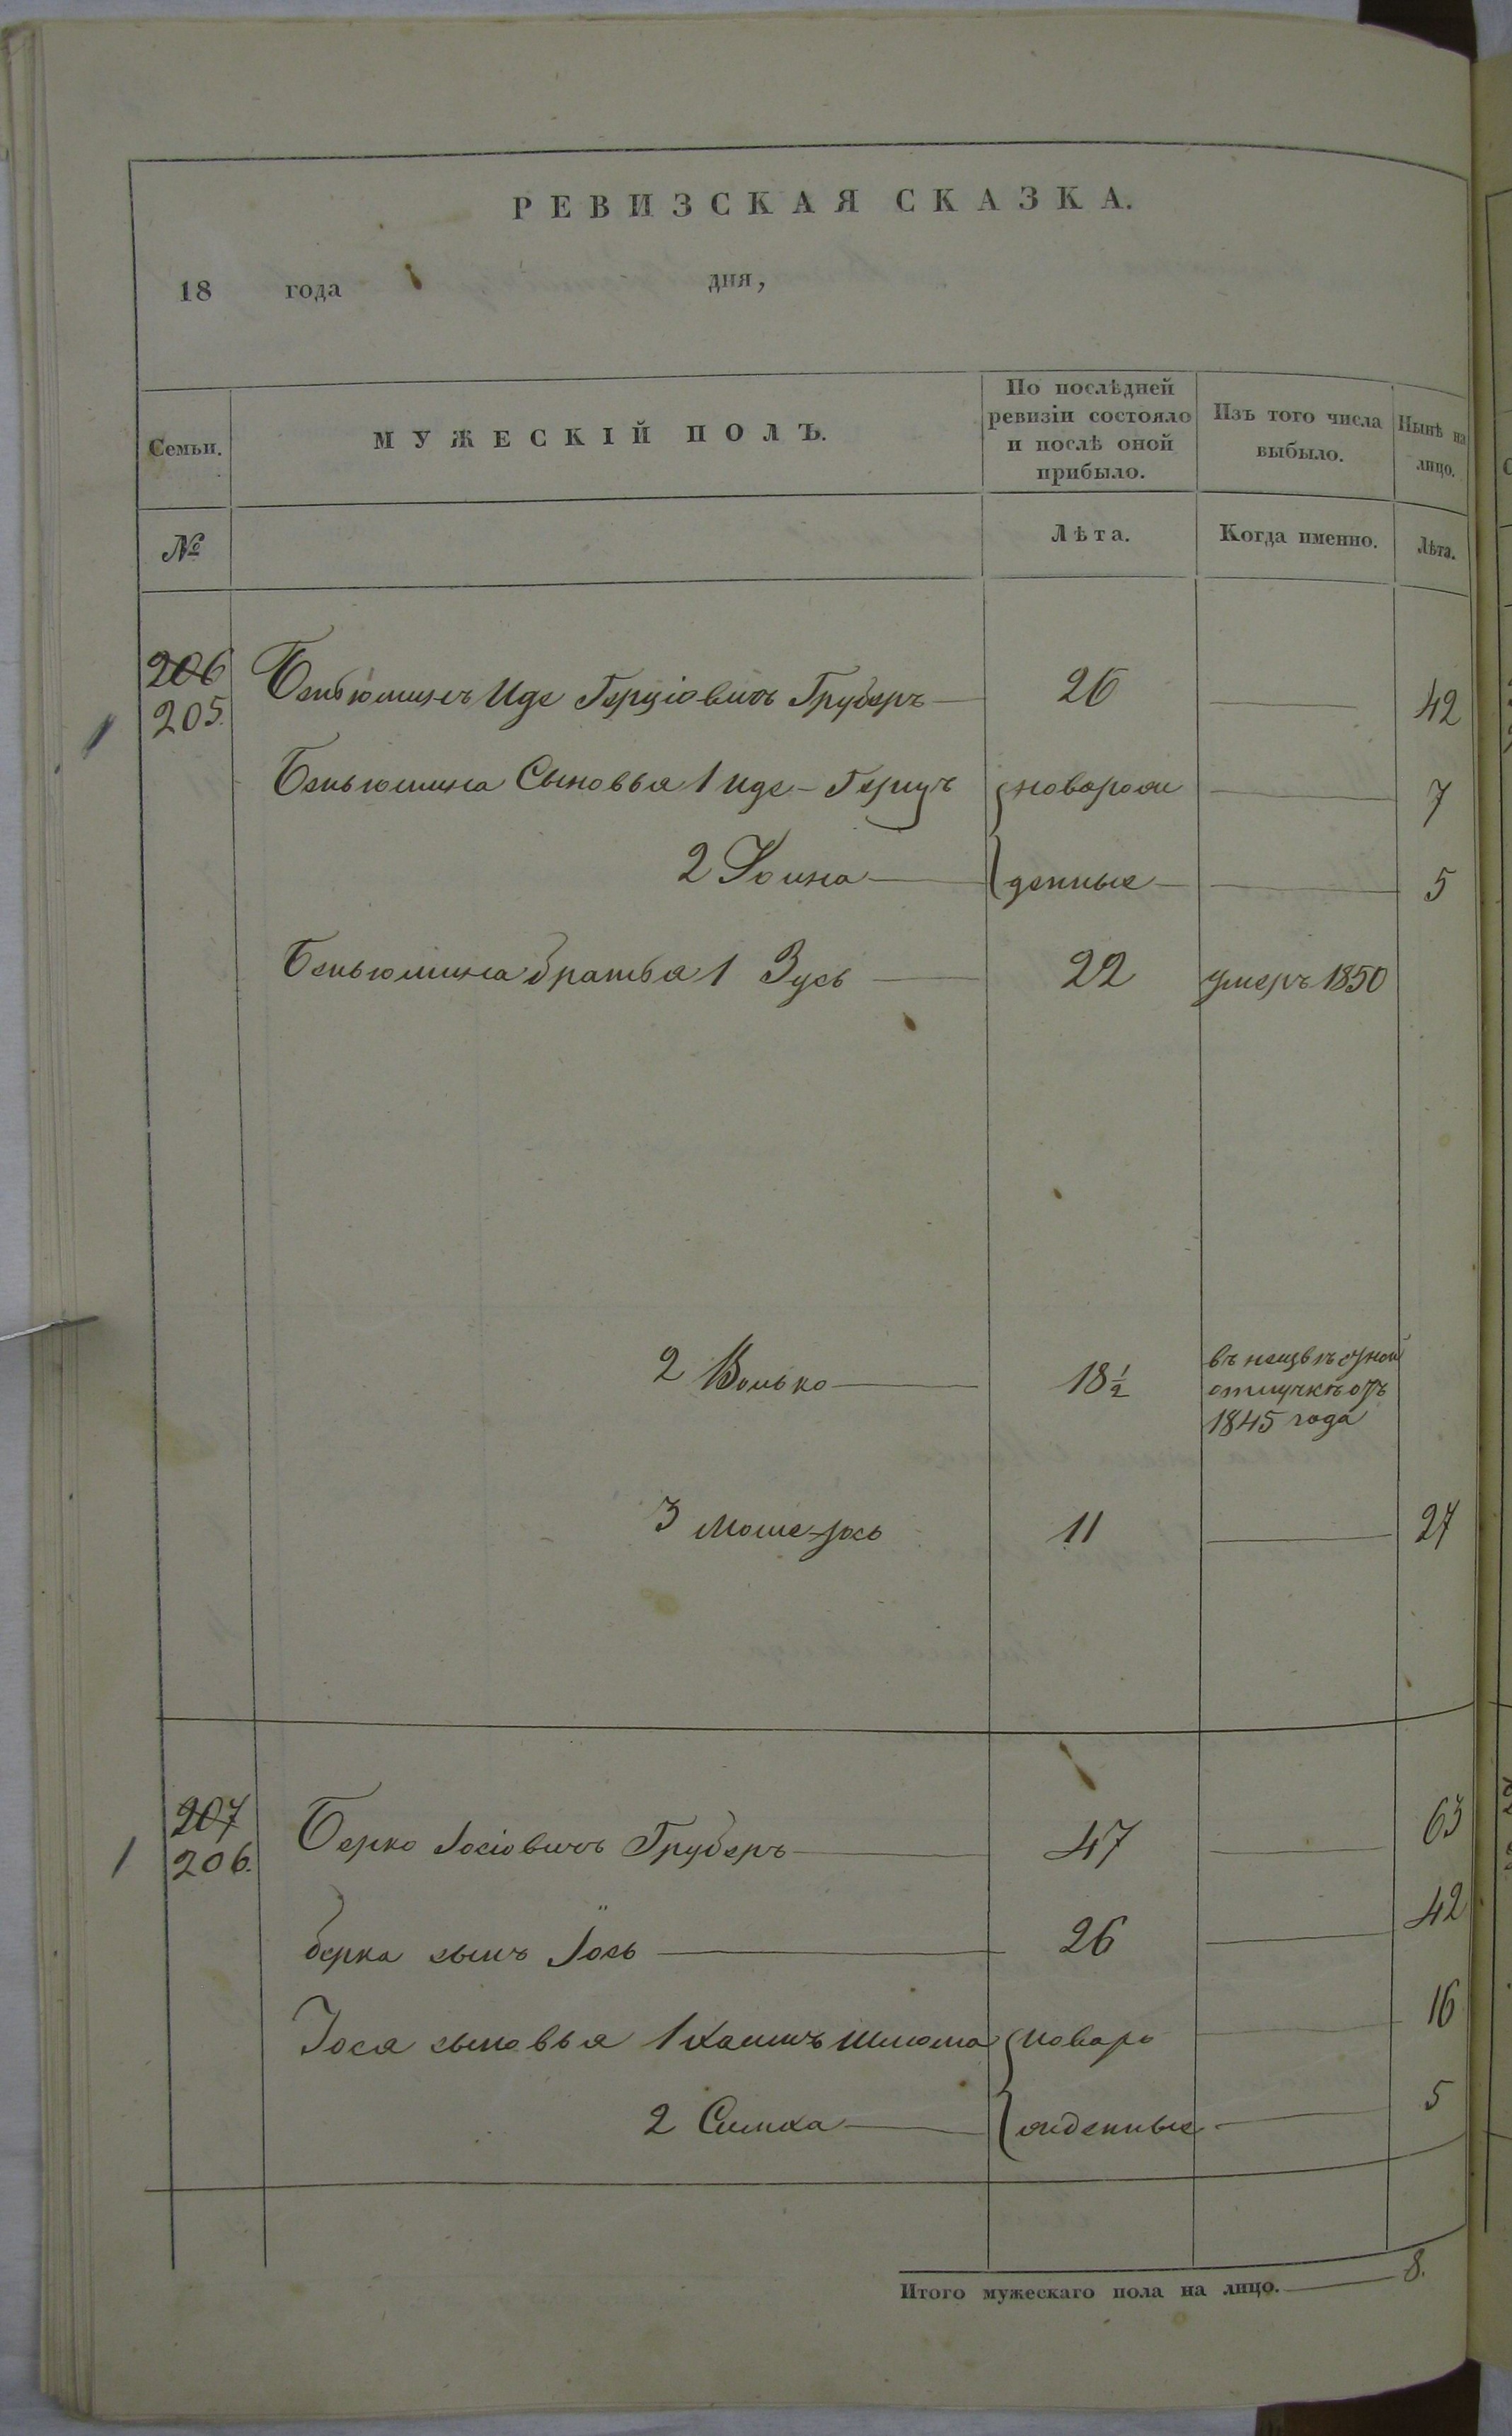 РЕВИЗСКАЯ СКАЗКА.
18 года дня,
Семьи. МУЖЕСКІЙ ПОЛЪ. По послѣдней ревизіи состояло и послѣ оной прибыло. Изъ того числа выбыло. Нынѣ на лицо.
№ Лѣта. Когда именно. Лѣта.
206
205. Беньюминъ Иде Герціовичъ Груберъ 26 42
Беньюмина Сыновья 1 Иде-Герцъ новорож 7
2 Хоина денные 5
Беньюмина братья 1 Зусь 22 умеръ 1850
2 Волько 18 1/2 въ неизвѣстной
отлучкѣ отъ
1845 года
3 Моше-Іось 11 27
207
206. Берко Іосіовичъ Груберъ 47 63
берка сынъ Іось 26 42
Іося сыновья 1 Хаимъ Шлома новоро 16
2 Симха жденные 5
Итого мужескаго пола на лицо. 8.